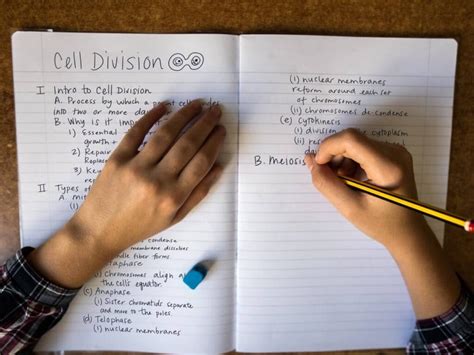 Cell Division
I Intro to Cell Division
A. Process by which a parent cell
into two or more da
B. Why is it impo
1) Essential
growth
2) Repair
Replace
3) Ke
II Types
A. mi
condense
membrane dissolves
dle fiber forms
taphase
(i) Chromosomes align a
the cells equator.
(c) Anaphase
(i) Sister chromatids separate
and move to the poles.
(d) Telophase
(i) nuclear membranes
(i) nuclear membranes
reform around each set
of chromosomes
(ii) chromosomes de-condense
(e) Cytokinesis
(i) division cytoplasm
(ii)
B. Meiosis